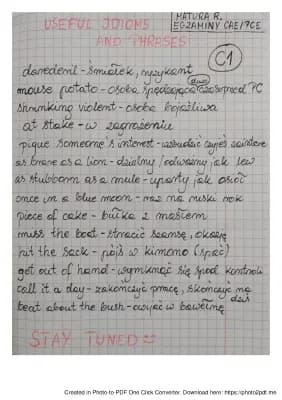 USEFUL IDIOMS
AND PHRASES
MATURA R.
EGZAMINY CAE/PCE
C1
daredevil - śmiałek, ryzykant
mouse potato - osoba spędzająca dużo czasu przed PC
shrinking violent - osoba bojaźliwa
at stake - w zagrożeniu
pique someone's interest - wzbudzić czyjeś zaintere
as brave as a lion - dzielny/odważny jak lew
as stubborn as a mule - uparty jak osioł
once in a blue moon - raz na ruski rok
piece of cake - bułka z masłem
miss the boat - stracić szansę, okazję
hit the sack - pójść w kimono (spać)
get out of hand - wymknąć się spod kontroli
call it a day - zakończyć pracę, skończyć na dziś
beat about the bush - owijać w bawełnę
STAY TUNED
Created in Photo to PDF One Click Converter. Download here: https://photo2pdf.me